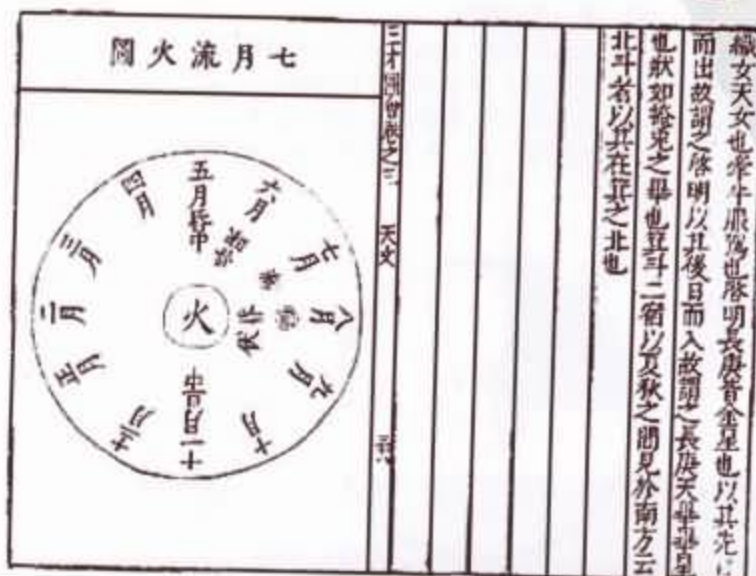 織女天女也牽牛服箱也啓明長庚皆金星也以其先
而出故謂之啓明以其後日而入故謂之長庚天畢畢星
也狀如掩兎之畢也箕斗二宿以夏秋之間見於南方云
北斗者以其在箕之北也
三才圖會卷之三 天文
七月流火圖
火
正月
二月
三月
四月
五月昏中
六月
七月
八月
九月
十月
十一月旦中
十二月